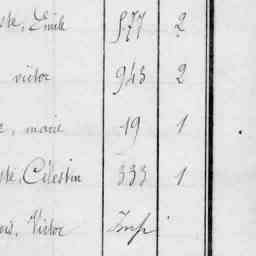 Emile 577 2
victor 943 2
marie 19 1
Célestin 333 1
Victor Imp